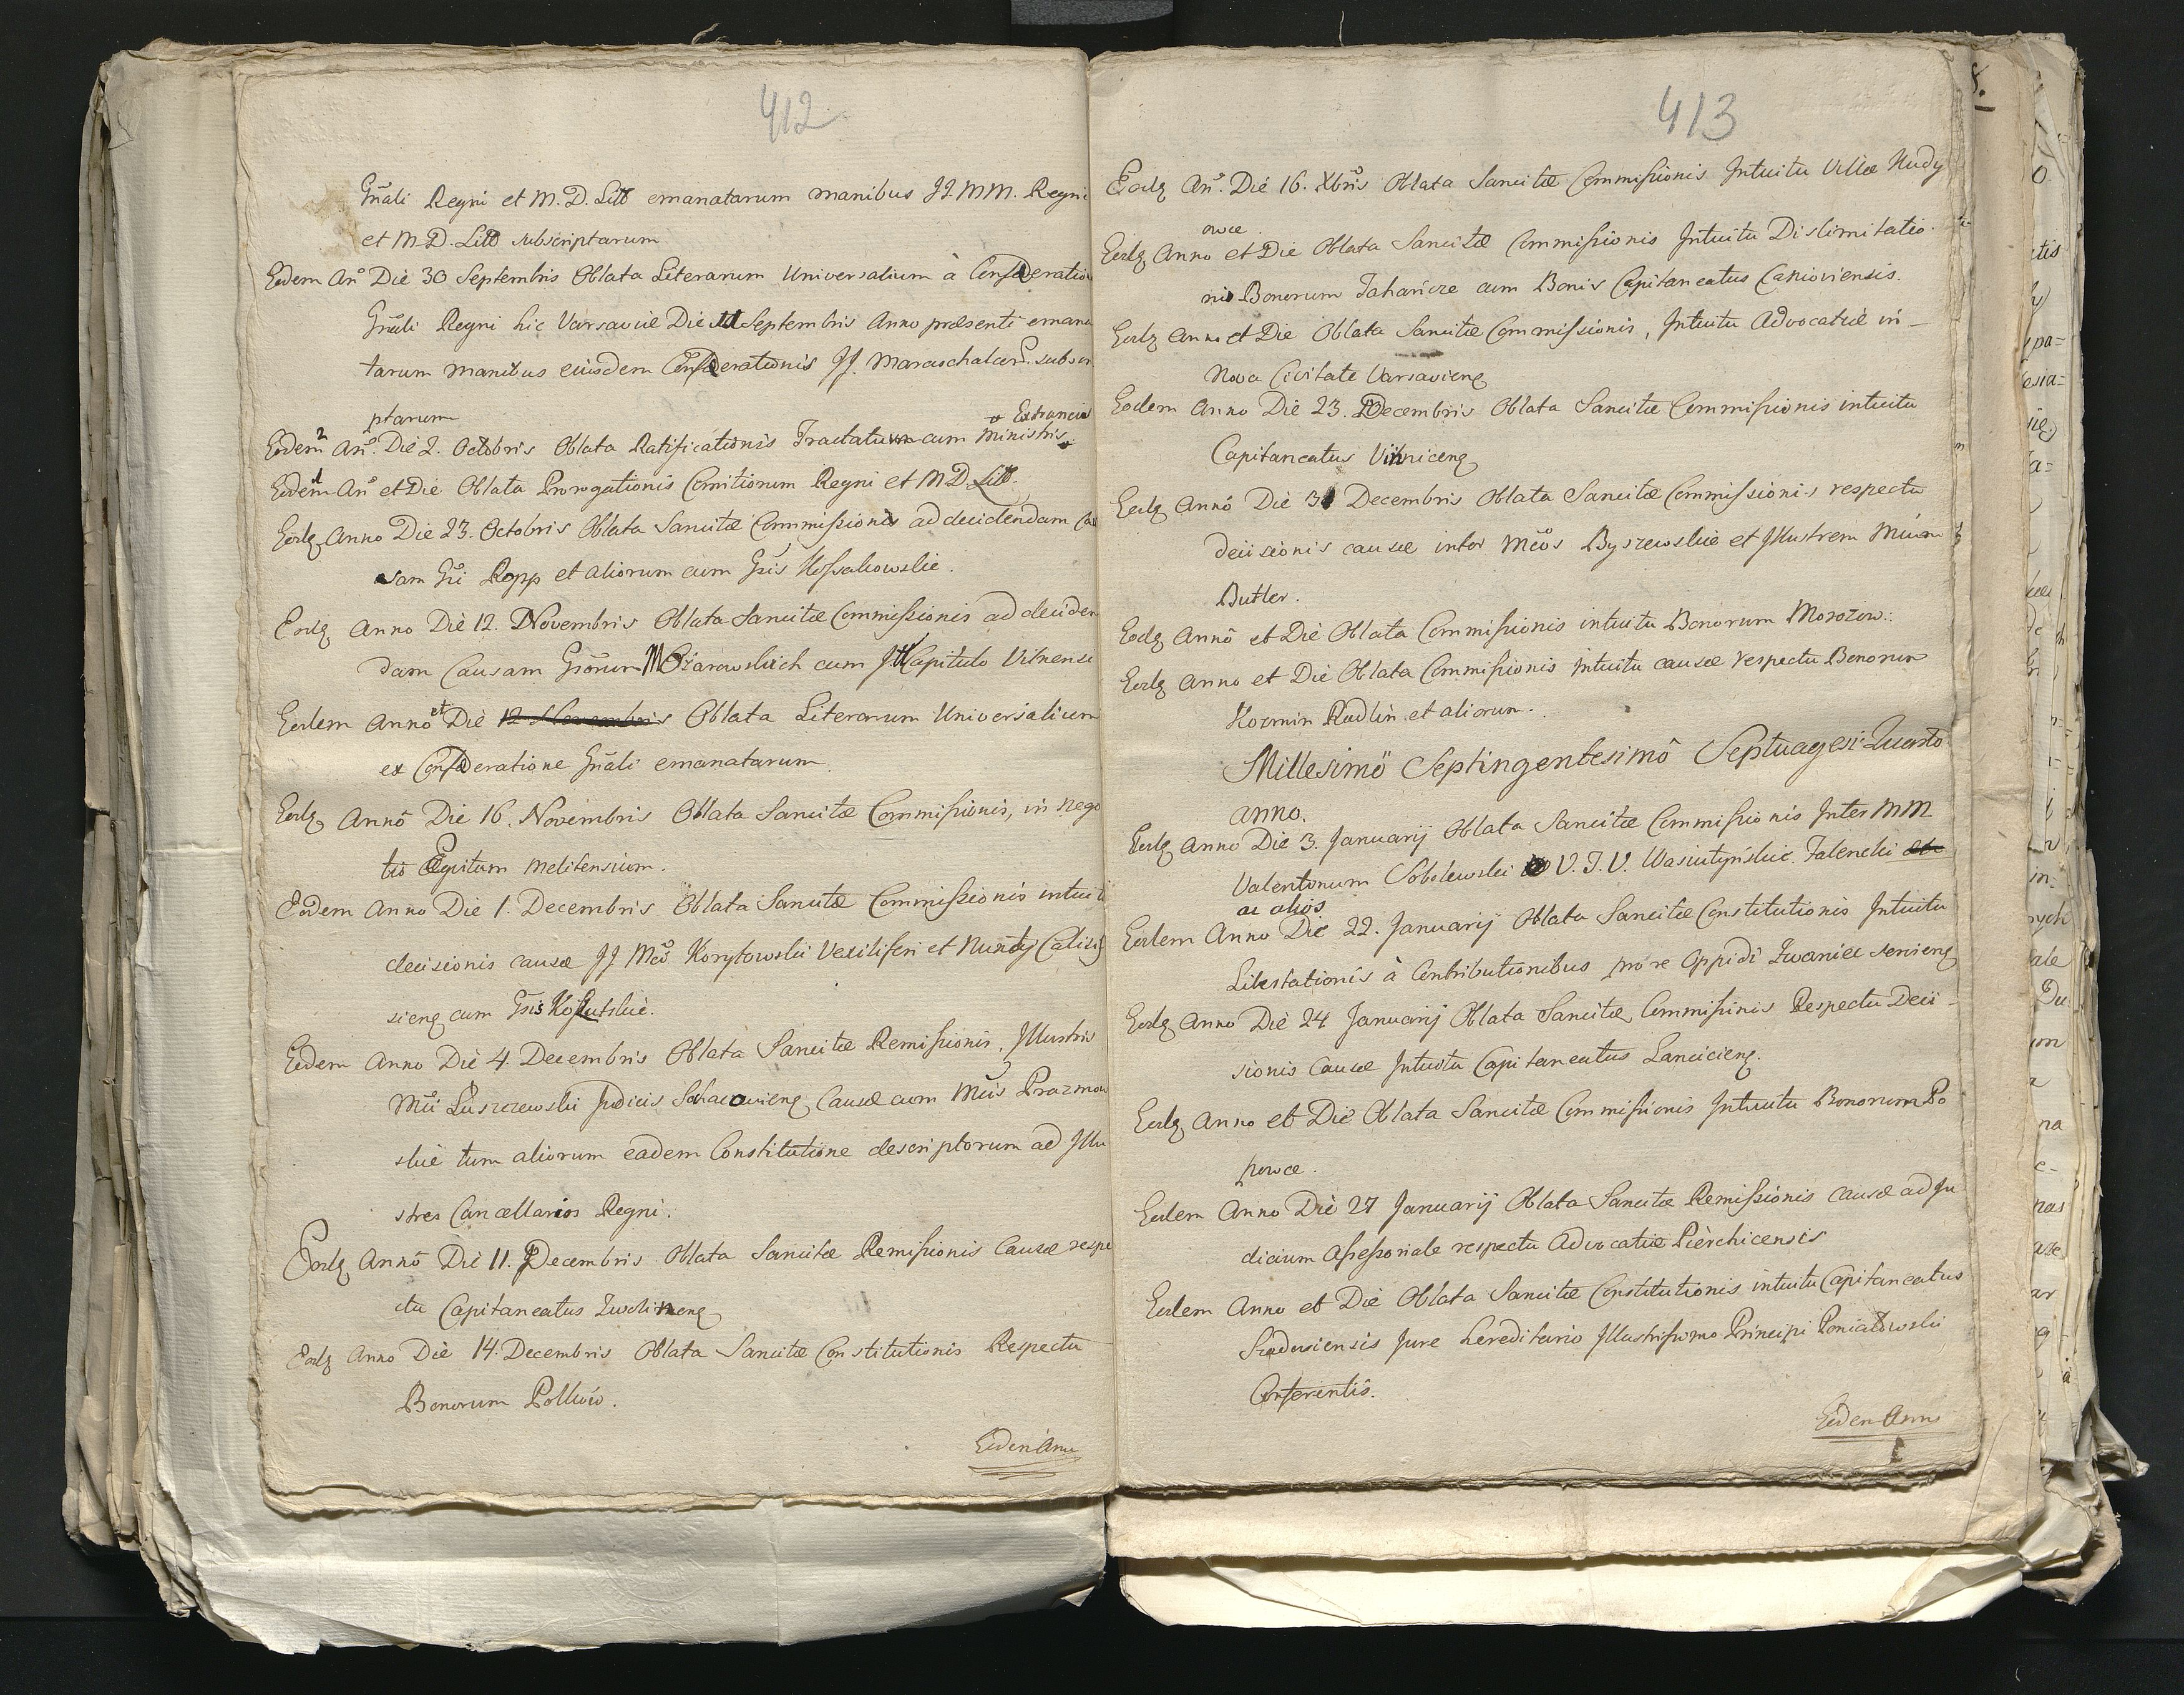 412
Gnãli Regni et M. D. Litt emanatarum manibus JJ. MM. Regni
et M. D. Litt subscriptarum
Eodem Anº Die 30 Septembris Oblata Literarum Universalium à Confæderatio
Gnãli Regni hic Varsaviæ Die Septembris Anno præsenti emana
tarum manibus eiusdem Confæderationis JJ. Mareschalcor. subscri
ptarum
Eodem 2 Anº. Die 2. Octobris Oblata Ratificationis Tractatum cum Ministris Extraneis
Eodem 1 Anº et Die Oblata Prorogationis Comitiorum Regni et M D Litt.
Eodq Anno Die 23. Octobris Oblata Sancitæ Commissionis ad decidendam Ca
usam Gñi Ropp et aliorum cum Gsis Kossakowskie.
Eodq Anno Die 12. Novembris Oblata Sancitæ Commissionis ad deciden
dam Causam Grõrum Ożarowskich cum Capitulo Vilnensi
Eodem Anno et Die 12 Novembris Oblata Literarum Universalium
ex Confæderatione Gnãli emanatarum
Eodq Annô Die 16. Novembris Oblata Sancitæ Commissionis, in nego
tio Eqitum Melitensium.
Eodem Anno Die 1. Decembris Oblata Sancitæ Commissionis intuitu
decisionis causæ JJ Mcõ Korytowski Vexiliferi et Nuntij Calis
sieng cum Gsis Koszutskie.
Eodem Anno Die 4. Decembris Oblata Sancitæ Remissionis, Jllustris
Mci Luszczewski Judicis Sochacovieng Causæ cum Mcis Prazmow
skie tum aliorum eadem Constitutione descriptorum ad Jllu
stres Cancellarios Regni.
Eodq Annô Die 11. Decembris Oblata Sancitæ Remissionis Causæ respe
ctu Capitaneatus Zwolineng
Eodq Anno Die 14. Decembris Oblata Sancitæ Constitutionis Respectu
Bonorum
Eodem Anno
413
Eodq Anº. Die 16. Xbris Oblata Sancitæ Commissionis Intuitu Villæ Rudy
owce
Eodq Anno et Die Oblata Sancitæ Commissionis Intuitu Dislimitatio
nis Bonorum Tahancze cum Bonis Capitaneatus Canioviensis.
Eodq Anno et Die Oblata Sancitæ Commissionis, Intuitu Advocatiæ in
Nova Civitate Varsavieng
Eodem Anno Die 23. Decembris Oblata Sancitæ Commissionis intuitu
Capitaneatus Vinniceng
Eodq Annô Die 31 Decembris Oblata Sancitæ Commissionis respectu
decisionis causæ inter Mcõs Byszewskie et Jllustrem Mcum
Butler.
Eodq Annô et Die Oblata Commissionis intuitu Bonorum Morozow:
Eodq Anno et Die Oblata Commissionis intuitu causæ respectu Bonorum
Kozmin Radlin et aliorum.
Millesimô Septingentesimô Septuagesi: Quarto
anno.
Eodq Anno Die 3. Januarij Oblata Sancitæ Commissionis Inter MM
Valentonum Sobolewski V. J. V. Wasiutyńskie Falencki
ac alios
Eodem Anno Die 22. Januarij Oblata Sancitæ Constitutionis Intuitu
Libertationis à Contributionibus pro re Oppidi Zwaniec servieng
Eodq Anno Die 24 Januarij Oblata Sancitæ Commissionis Respectu Deci
sionis Causæ Intuitu Capitaneatus Lancicieng.
Eodq Anno et Die Oblata Sancitæ Commissionis Intuitu Bonorum Po
powce.
Eodem Anno Die 27 Januarij Oblata Sancitæ Remissionis causæ ad Ju
dicium Assessoriale respectu Advocatiæ Pierchicensis
Eodem Anno et Die Oblata Sancitæ Constitutionis intuitu Capitaneatus
Szadoviensis Jure hereditario Jllustrissimo Principi Poniatowski
Conferentis.
Eodem Anno